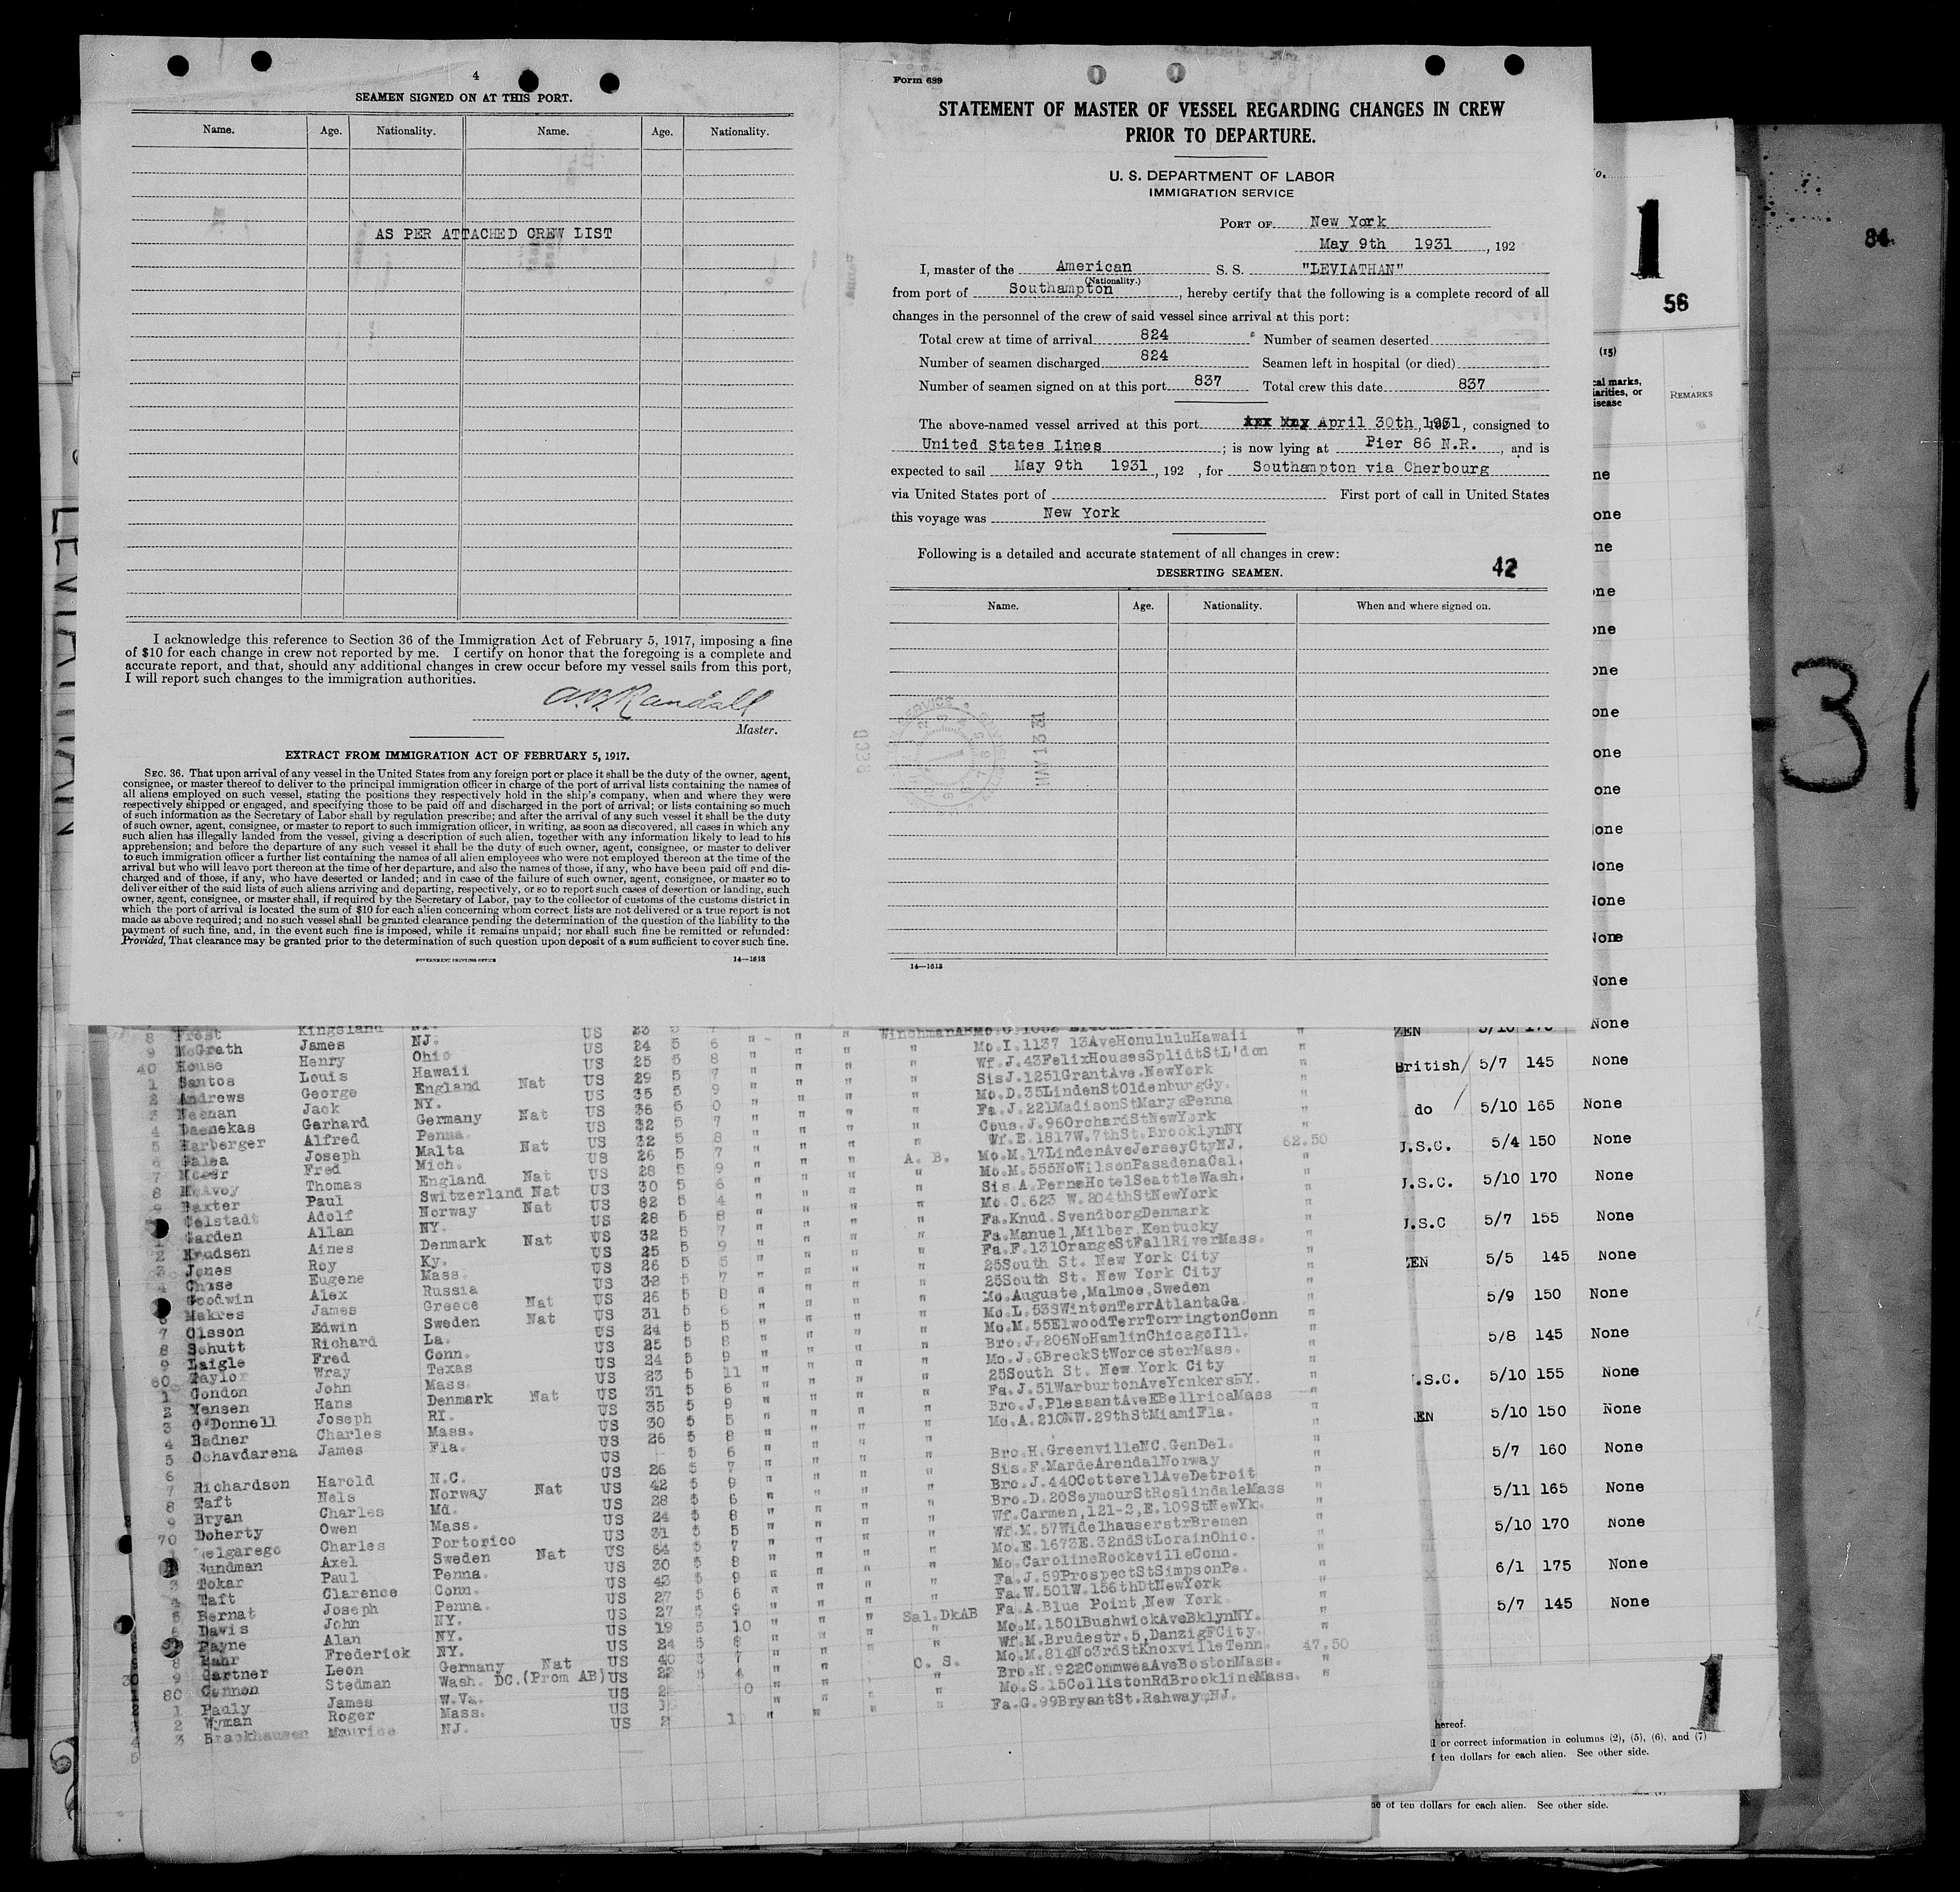 4
SEAMEN SIGNED ON AT THIS PORT.
Name. Age. Nationality. Name. Age. Nationality.
AS PER ATTACHED CREW LIST
I acknowledge this reference to Section 36 of the Immigration Act of February 5, 1917, imposing a fine
of $10 for each change in crew not reported by me. I certify on honor that the foregoing is a complete and
accurate report, and that, should any additional changes in crew occur before my vessel sails from this port,
I will report such changes to the immigration authorities.
A.B. Randall
Master.
EXTRACT FROM IMMIGRATION ACT OF FEBRUARY 5, 1917.
SEC. 36. That upon arrival of any vessel in the United States from any foreign port or place it shall be the duty of the owner, agent,
consignee, or master thereof to deliver to the principal immigration officer in charge of the port of arrival lists containing the names of
all aliens employed on such vessel, stating the positions they respectively hold in the ship's company, when and where they were
respectively shipped or engaged, and specifying those to be paid off and discharged in the port of arrival; or lists containing so much
of such information as the Secretary of Labor shall by regulation prescribe; and after the arrival of any such vessel it shall be the duty
of such owner, agent, consignee, or master to report to such immigration officer, in writing, as soon as discovered, all cases in which any
such alien has illegally landed from the vessel, giving a description of such alien, together with any information likely to lead to his
apprehension; and before the departure of any such vessel it shall be the duty of such owner, agent, consignee, or master to deliver
to such immigration officer a further list containing the names of all alien employees who were not employed thereon at the time of the
arrival but who will leave port thereon at the time of her departure, and also the names of those, if any, who have been paid off and dis-
charged and of those, if any, who have deserted or landed; and in case of the failure of such owner, agent, consignee, or master so to
deliver either of the said lists of such aliens arriving and departing, respectively, or so to report such cases of desertion or landing, such
owner, agent, consignee, or master shall, if required by the Secretary of Labor, pay to the collector of customs of the customs district in
which the port of arrival is located the sum of $10 for each alien concerning whom correct lists are not delivered or a true report is not
made as above required; and no such vessel shall be granted clearance pending the determination of the question of the liability to the
payment of such fine, and, in the event such fine is imposed, while it remains unpaid; nor shall such fine be remitted or refunded:
Provided, That clearance may be granted prior to the determination of such question upon deposit of a sum sufficient to cover such fine.
GOVERNMENT PRINTING OFFICE 14—1613
Form 689
STATEMENT OF MASTER OF VESSEL REGARDING CHANGES IN CREW
PRIOR TO DEPARTURE.
U. S. DEPARTMENT OF LABOR
IMMIGRATION SERVICE
PORT OF New York
May 9th 1931, 192
I, master of the American S. S. "LEVIATHAN"
(Nationality.)
from port of Southampton, hereby certify that the following is a complete record of all
changes in the personnel of the crew of said vessel since arrival at this port:
Total crew at time of arrival 824 Number of seamen deserted
Number of seamen discharged 824 Seamen left in hospital (or died)
Number of seamen signed on at this port 837 Total crew this date 837
The above-named vessel arrived at this port April 30th, 1931, consigned to
United States Lines; is now lying at Pier 86 N.R., and is
expected to sail May 9th 1931, 192 , for Southampton via Cherbourg
via United States port of First port of call in United States
this voyage was New York
Following is a detailed and accurate statement of all changes in crew:
42
DESERTING SEAMEN.
Name. Age. Nationality. When and where signed on.
RECD
MAY 13 31
14—1613
LEVIATHAN
1
56
84
31
(15)
cal marks,
iarities, or
isease
REMARKS
8 Frost Kingsland
9 McGrath James NJ. US 24 5 6
40 House Henry Ohio US 25 5 8 Mo.I.1137 13AveHonululuHawaii
1 Santos Louis Hawaii US 29 5 7 Wf.J.43FelixHousesSplidtStL'don
2 Andrews George England Nat US 35 5 9 SisJ.1251GrantAve.NewYork
3 Heenan Jack NY. US 36 5 0 Mo.D.35LindenStOldenburgGy.
4 Daenekas Gerhard Germany Nat US 32 5 7 Fa.J.221MadisonStMarysPenna
5 Harberger Alfred Penna. US 32 5 8 Cous.J.96OrchardStNewYork
6 Galea Joseph Malta Nat US 26 5 7 Wf.E.1817W.7thSt.BrooklynNY
7 Moser Fred Mich. US 28 5 9 A. B. Mo.M.17LindenAveJerseyCtyNJ. 62.50
8 McAvoy Thomas England Nat US 30 5 6 Mo.M.555NoWilsonPasadenaCal.
9 Baxter Paul Switzerland Nat US 82 5 4 Sis.A.PerneHotelSeattleWash.
Colstadt Adolf Norway Nat US 28 5 8 Mo.C.623 W.204thStNewYork
Garden Allan NY. US 32 5 7 Fa.Knud.SvendborgDenmark
2 Knudsen Aines Denmark Nat US 25 5 9 Fa.Manuel,Milber,Kentucky
3 Jones Roy Ky. US 26 5 5 Fa.F.131OrangeStFallRiverMass.
4 Chase Eugene Mass. US 32 5 7 25South St. New York City
Goodwin Alex Russia US 26 5 8 25South St. New York City
6 Makres James Greece Nat US 31 5 6 Mo.Auguste,Malmoe,Sweden
7 Olsson Edwin Sweden Nat US 24 5 5 Mo.L.53SWintonTerrAtlantaGa.
8 Schutt Richard La. US 25 5 8 Mo.M.55ElwoodTerrTorringtonConn
9 Laigle Fred Conn. US 24 5 9 Bro.J.206NoHamlinChicagoIll.
60 Taylor Wray Texas US 23 5 11 Mo.J.6BreckStWorcesterMass.
1 Condon John Mass. US 31 5 6 25South St. New York City
2 Yensen Hans Denmark Nat US 35 5 9 Fa.J.51WarburtonAveYonkersNY.
3 O'Donnell Joseph RI. US 30 5 5 Bro.J.PleasantAveEBellricaMass
4 Badner Charles Mass. US 26 5 8 Mo.A.210NW.29thStMiamiFla.
5 Ochavdarena James Fla. US 5 6
6
7 Richardson Harold N.C. US 26 5 7 Bro.H.GreenvilleNC.GenDel.
8 Taft Nels Norway Nat US 42 5 9 Sis.F.MardeArendalNorway
9 Bryan Charles Md. US 28 5 6 Bro.J.440CotterellAveDetroit
70 Doherty Owen Mass. US 24 5 8 Bro.D.20SeymourStRoslindaleMass
Charles Portorico US 31 5 5 Wf.Carmen,121-3,E.109StNewYk.
Sundman Axel Sweden Nat US 64 5 7 Wf.M.57WidelhauserstrBremen
3 Tokar Paul Penna. US 30 5 8 Mo.E.1673E.32ndStLorainOhio.
4 Taft Clarence Conn. US 43 5 9 Mo.CarolineRockevilleConn.
5 Bernat Joseph Penna. US 27 5 6 Fa.J.59ProspectStSimpsonPa.
6 Davis John NY. US 27 5 9 Fa.W.501W.156thDtNewYork
Payne Alan NY. US 19 5 10 Sal.DkAB Fa.A.Blue Point,New York.
8 Frederick NY. US 24 5 8 Mo.M.1501BushwickAveBklynNY.
9 Gartner Leon Germany Nat US 40 5 7 O. S. Wf.M.Brudestr.5,DanzigFCity.
80 Cannon Stedman Wash. DC.(Prom AB) US 22 5 4 Mo.M.814No3rdStKnoxvilleTenn. 47.50
1 Pauly James W.Va. US Bro.H.922CommweaAveBostonMass.
2 Wyman Roger Mass. US Mo.S.15CollistonRdBrooklineMass.
3 Brackhausen Maurice NJ. US Fa.G.99BryantSt.RahwayNJ.
ZEN 5/10 170 None
British 5/7 145 None
do 5/10 165 None
U.S.C. 5/4 150 None
U.S.C. 5/10 170 None
U.S.C 5/7 155 None
ZEN 5/5 145 None
5/9 150 None
5/8 145 None
.S.C. 5/10 155 None
ZEN 5/10 150 None
5/7 160 None
5/11 165 None
5/10 170 None
6/1 175 None
5/7 145 None
1
hereof.
or correct information in columns (2), (5), (6), and (7)
f ten dollars for each alien. See other side.
ne of ten dollars for each alien. See other side.